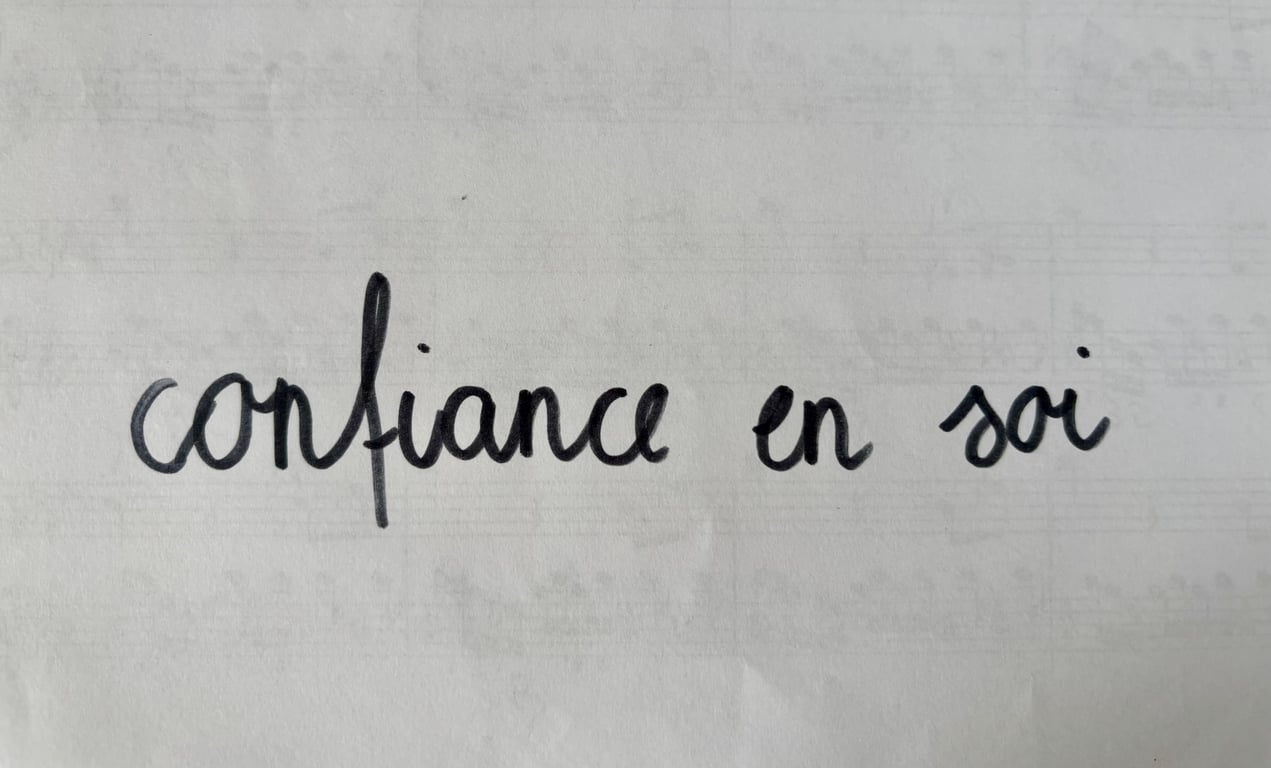 confiance en soi